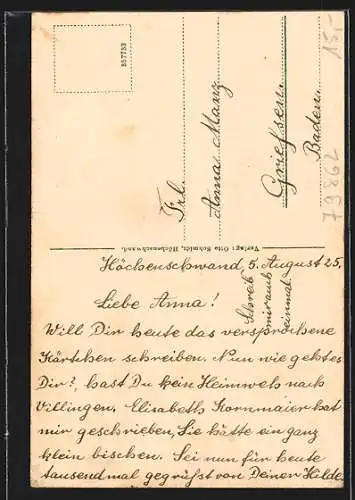 357753
15,-
79862
Frl.
Anna Manz
Grießen
Baden.
Verlag: Otto Schmidt, Höchenschwand.
Höchenschwand, 5. August 25.
Schreib
mir auch
einmal
Liebe Anna!
Will Dir heute das versprochene
Kärtchen schreiben. Nun wie geht es
Dir?, hast Du kein Heimweh nach
Villingen. Elisabeth Kornmaier hat
mir geschrieben, Sie hätte ein ganz
klein bischen. Sei nun für heute
tausendmal gegrüßt von Deiner Hilde.